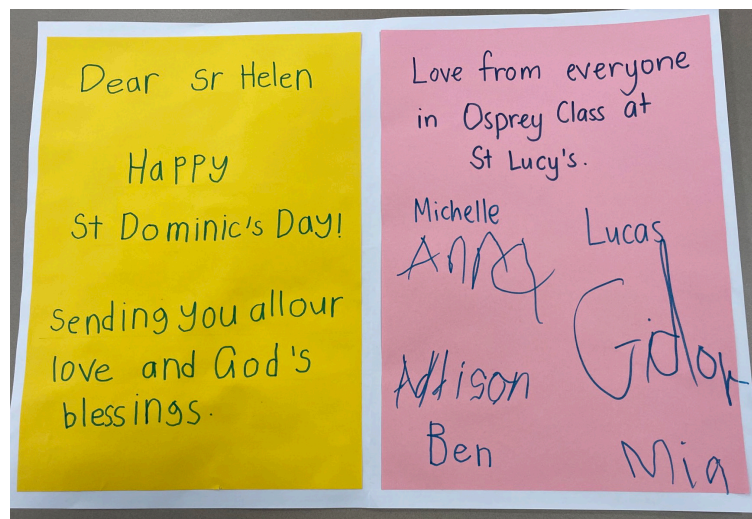 Dear Sr Helen
Happy
St Dominic's Day!
Sending you all our
love and God's
blessings.
Love from everyone
in Osprey Class at
St Lucy's.
Michelle
Lucas
Anna
Addison
Ben
Mia